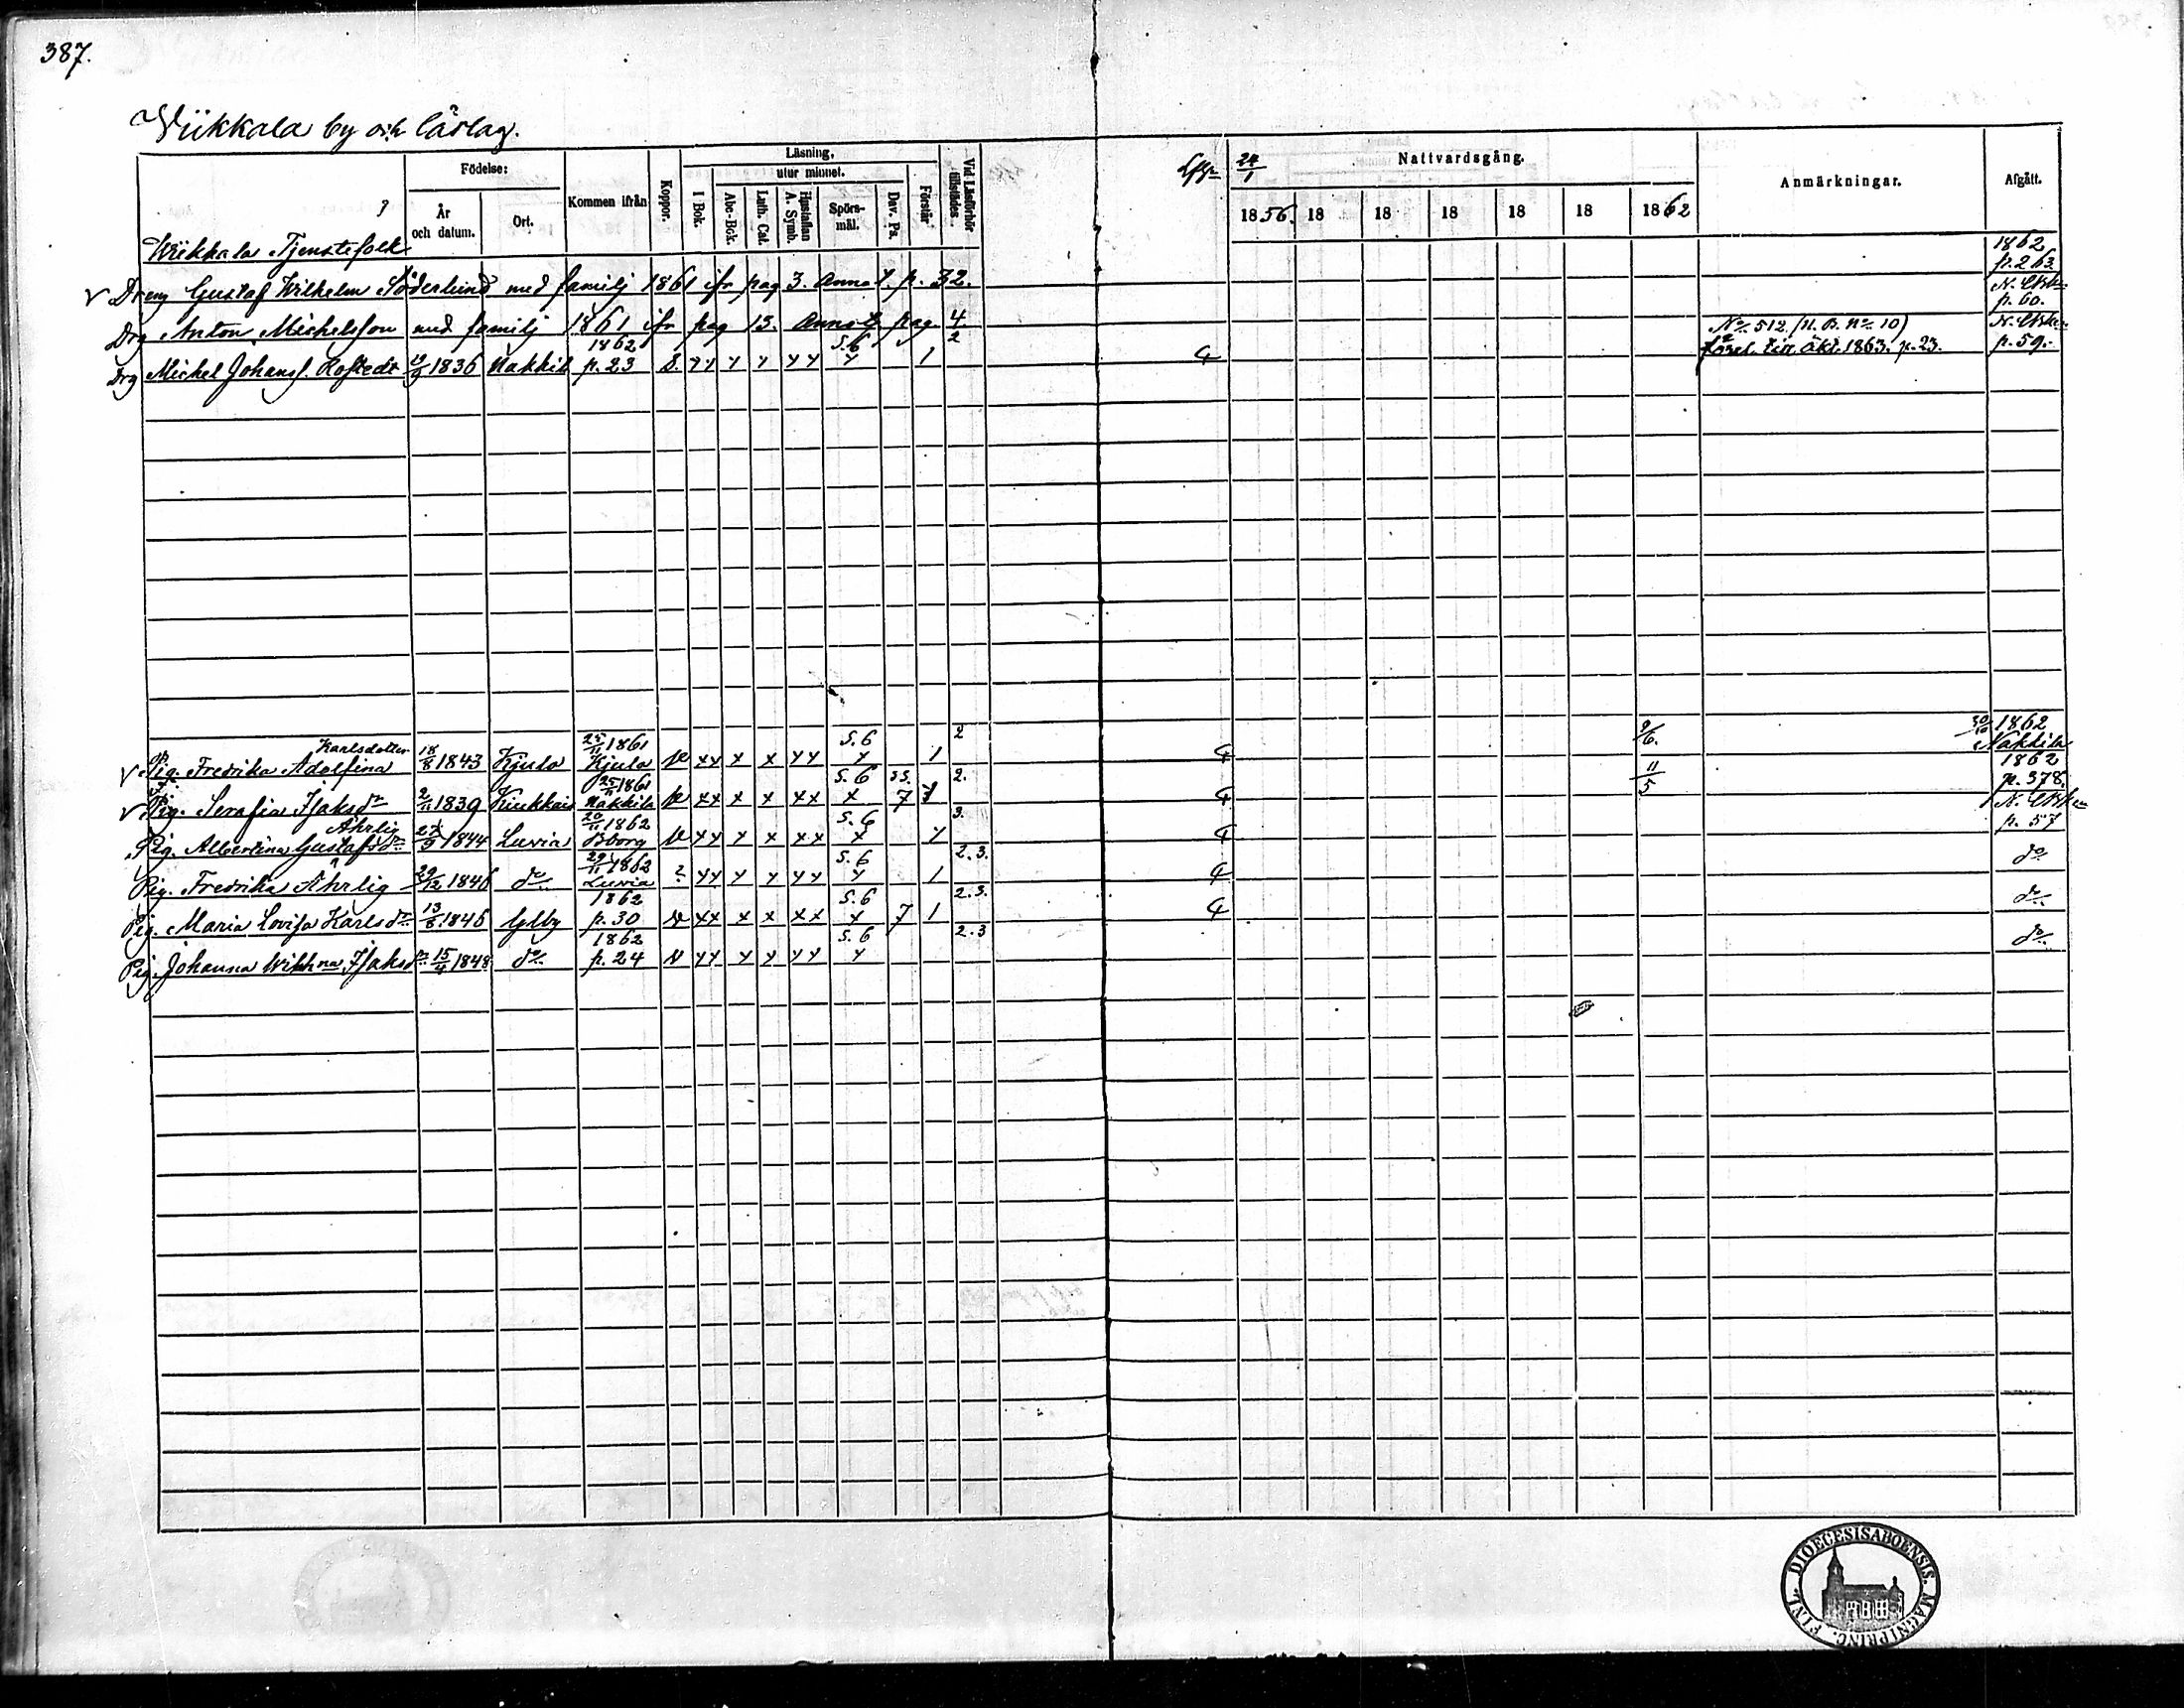 387.
Wiikkala by och låslag.
Födelse: Kommen ifrån Koppor. Läsning, utur minnet. Vid Läsförhör tillstädes. 24/1 Nattvardsgång. Anmärkningar. Afgått.
År och datum. Ort. I Bok. Abc-Bok. Luth. Cat. Hustaflan A. Symb. Spörsmål. Dav. Ps. Förstår 1856. 18 18 18 18 18 1862
Wiikkala Tjenstefolk
v Dreng Gustaf Wilhelm Söderlund med familj 1861 ifr pag 3. Annot. p. 32. 1862 p. 263.
Drg Anton Michelsson med familj 1861 ifr pag 13. Annot. pag. 4. p. 60.
Drg Michel Johanss. Lofstedt 1836 Nakkila 1862 p. 23 S. y y y y y y S. 6 y 1 2 4 No 512 (U. B. No 10) förel. till äkt. 1863. p. 23. p. 59.
v Pig. Fredrika Adolfina Karlsdotter 18/8 1843 Kjulo 25/11 1861 Kjulo v x x x x y y S. 6 y 1 2 4 9/6. 30/10 1862 Nakkila
v Pig. Serafia Isaksdr 2/11 1839 Kiukkais 25/11 1861 Nakkila v x x x x x x S. 6 x 7 2. 4 11/5 1862 p. 378.
Pig. Albertina Gustafsdr Åhrlig 1844 Luvia 20/11 1862 Bborg v y y y x x x S. 6 x y 3. 4 p. 57
Pig. Fredrika Åhrlig 29/12 1846 do 29/11 1862 Luvia ? y y y y y y S. 6 y 1 2. 3. 4 do
Pig. Maria Lovisa Karlsdr 13/8 1846 Ulfby 1862 p. 30 v x x x x x x S. 6 x 7 1 2. 3. 4 do
Pig. Johanna Wilhna Isaksdr 15/4 1848 do 1862 p. 24 v y y y y y y S. 6 y 2. 3 do
DIOECESIS ABOENSIS. MAGNI PRINC. FINL.